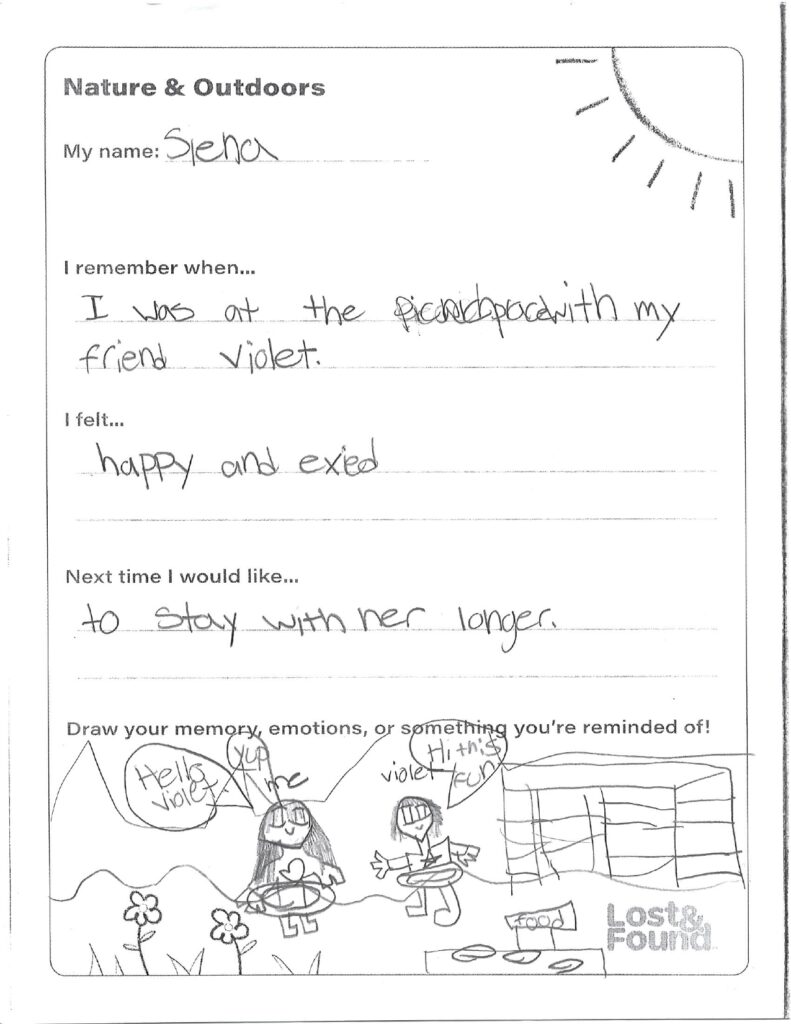 Nature & Outdoors
My name: Siena
I remember when...
I was at the with my
friend violet.
I felt...
happy and exied
Next time I would like...
to stay with her longer.
Draw your memory, emotions, or something you're reminded of!
Hello
violet.
yup
me
violet
Hi this
fun
food
Lost&
Found